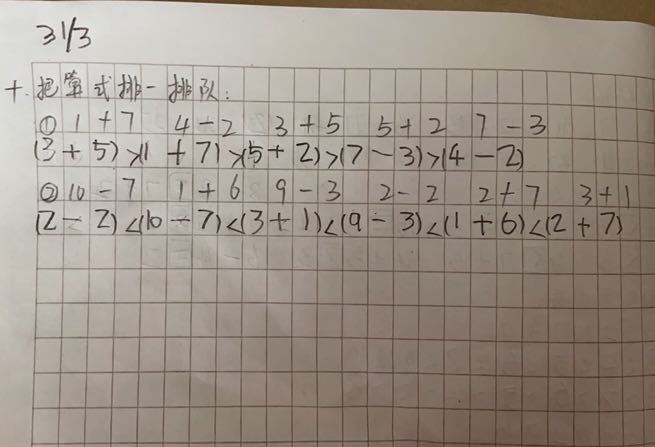 31/3
十.把算式排一排队:
① 1+7 4-2 3+5 5+2 7-3
(3+5)>(1+7)>(5+2)>(7-3)>(4-2)
② 10-7 1+6 9-3 2-2 2+7 3+1
(2-2)<(10-7)<(3+1)<(9-3)<(1+6)<(2+7)